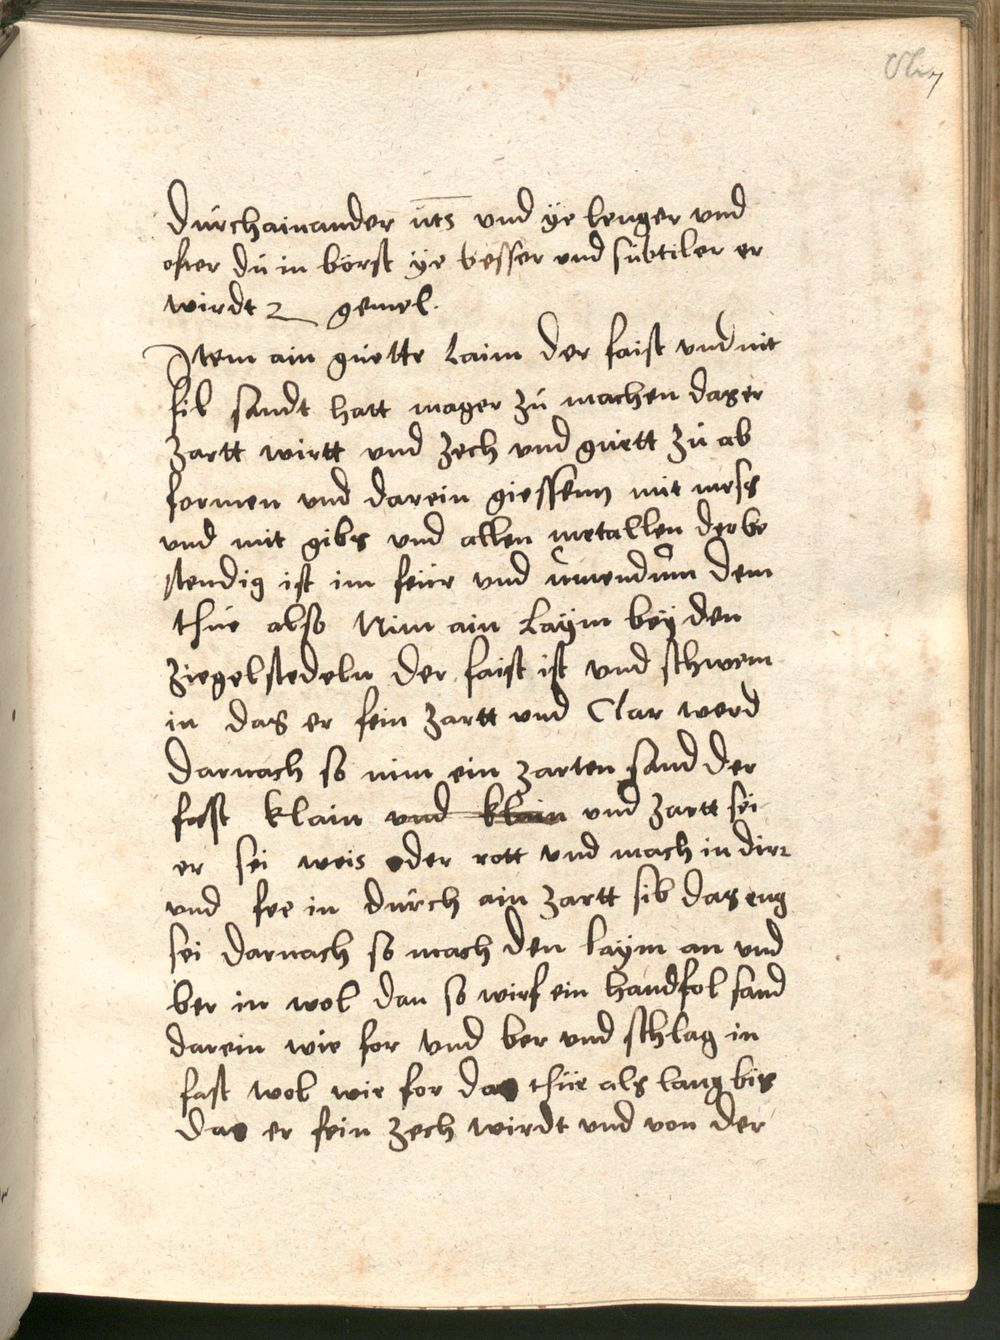 dúrchainander ut͞s und ÿe lenger und
ofter dú in börst ÿe besser und súbtiler er
wirdt 2 gemel.
Item ain guette Laim der faist und nit
fil sandt hatt mager zú machen das er
zartt wirtt und zech und guett zú ab
formen und darein giessenn mit mess
und mit gibs und allen metallen der be
stendig ist im feür und úmendúm dem
thúe also Nim ain Laÿm beÿ den
ziegelstedeln der faist ist und schwem
in das er fein zartt und Clar werd
darnach so nim ein zarten sand der
fast klain und klain und zartt sei
er sei weis oder rott und mach in dir
und see in dúrch ain zartt sib das eng
sei darnach so mach den laÿm an und
ber in wol dan so wirf ein handfol sand
darein wie for und ber und schlag in
fast wol wie for das thúe als lang bis
das er fein zech wirdt und von der